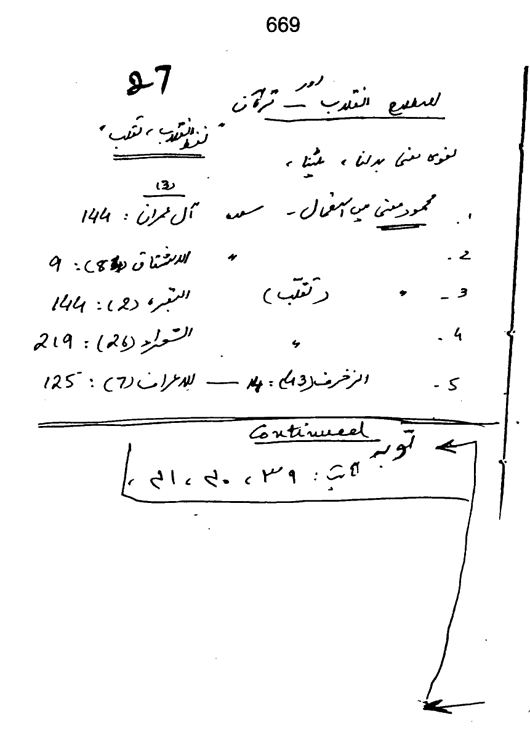 669
27
اصطلاح انقلاب — اور قرآن
"لفظ انقلاب، تقلب"
لغوی معنی بدلنا، پلٹنا،
1. محمود معنی میں استعمال - سورہ آل عمران (3) : 144
2. " الانشقاق (84): 9
3 - " (تقلّب) البقرہ (2): 144
4. " الشعراء (26): 219
5 - الزخرف (43): 14 — الاعراف (7): 125
Continued
توبہ
آیت: ۳۹، ۴۰، ۴۱،